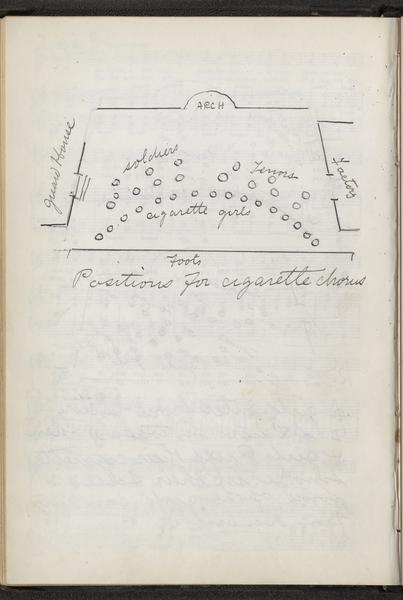 ARCH
Guard House
soldiers
Tenors
Factory
cigarette girls
Foots
Positions for cigarette chorus